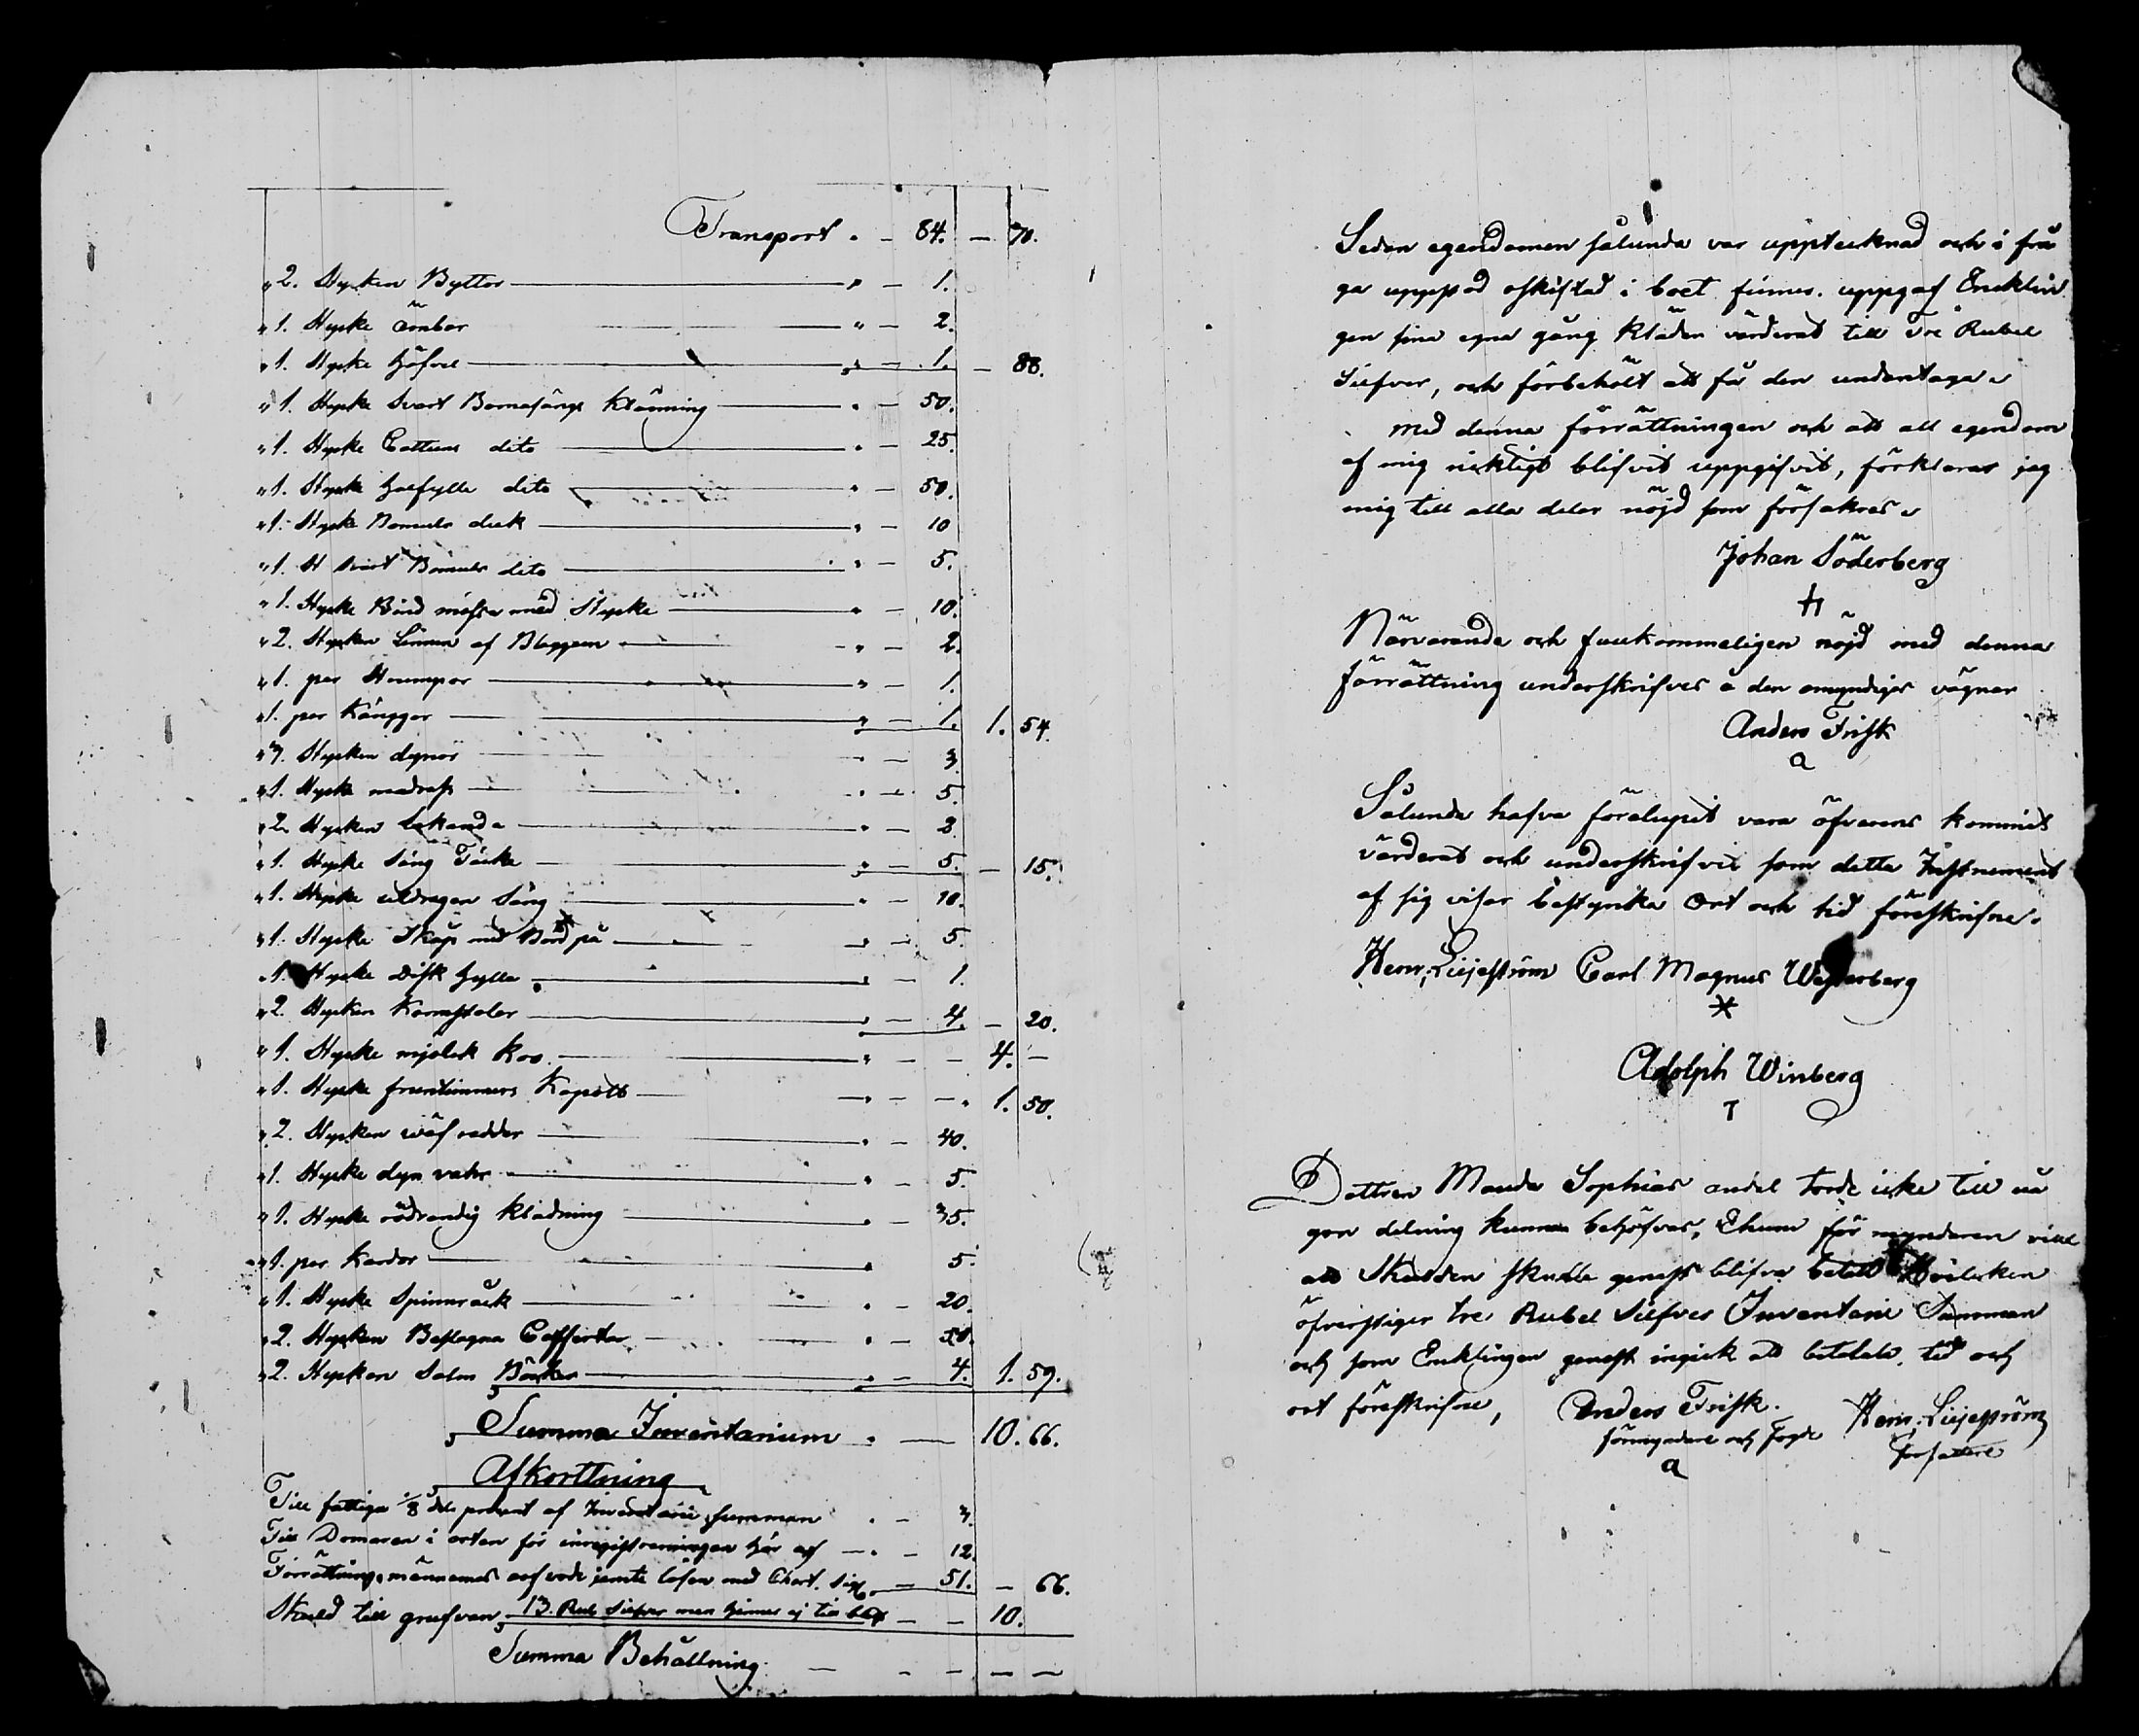 Transport . – 84. – 70.
" 2. Stycken Byttor " – 1.
" 1. Stycke ämbar " – 2.
" 1. Stycke Höfvel " – 1. – 88.
" 1. Stycke Svart Bomasängs Klänning " – 50.
" 1. Stycke Cattuns dito " – 25.
" 1. Stycke Halfylle dito " – 50.
" 1. Stycke Bomuls duk " – 10
" 1. St svart Bomuls dito " – 5.
" 1. Stycke Bind mössa med Stycke " – 10.
" 2. Stycken Linnen af Blaggarn " – 2.
" 1. par Strumpor " – 1.
" 1. par Kängger " – 1. 1. 54.
" 3. Stycken dynor " – 3
" 1. Stycke madrass " – 5.
" 2. Stycken Lakand " – 2
" 1. Stycke Säng Täcke " – 5. – 15.
" 1. Stycke utdragen Säng " – 10.
" 1. Stycke Skåp med Bord på " – 5.
" 1. Stycke Disk Hylla " – 1.
" 2. Stycken Karmstolar " – 4. – 20.
" 1. Stycke mjolck Koo " – – 4. –
" 1. Stycke fruntimmers Kapott " – – 1. 50.
" 2. Stycken wäf redder " – 40.
" 1. Stycke dyn vahr " – 5.
" 1. Stycke rödrandig Kladning " – 35.
" 1. par Kardor " 5.
" 1. Stycke Spinnråck " – 20.
" 2. Stycken Beslagna Coffertar " – 50.
" 2. Stycken Salm Böcker " – 4. 1. 59.
Summa Inventarium . — 10. 66.
Afkorttning
Till fattiga 1/8 dels procent af Inventarii summan . – 3.
Till Domaren i orten för inregistreringen här af – . – 12.
Förrättningsmännernas arfvode jemte lösen med Chart. Sig. – 51. – 66.
Skuld till grufvan 13. Rub Silfver men hinner ej till blott – – 10.
Summa Behållning – – – – –
Sedan egendomen sålunda var upptecknad och i frå
ga uppstod oskiftad i boet finnes. uppgaf Encklin
gen sina egna gång Kläder värderat till Tre Rubel
Silfver, och förbehölt att få den undantaga.
Med denna förrättningen och att all egendom
af mig ricktigt blifvit uppgifvit, förklarar jag
mig till alla delar nöjd som försäkras.
Johan Söderberg
Närvarande och fullkommeligen nöjd med denna
förrättning underskrifves å den omyndiges vägnar
Anders Frisk
a
Sålunda hafva förelupit vara öfverens kommit
värderat och underskrifvit som detta Instrument
af sig visar bestyrka Ort och tid föreskrifne.
Henr, Liljeström Carl Magnus Westerberg
Adolph Winberg
T
Dottren Manda Sophias andel torde icke till nå
gon delning kunna behöfvas, Ehuru förmyndaren vill
att Skulden skulle genast blifva betalt hvilcken
öfverstiger tre Rubel Silfver Inventarie Summan
och som Encklingen genast ingick att betala. tid och
ort föreskrifne, Anders Frisk. Henr, Liljeström
förmyndare och Fogde författare
a